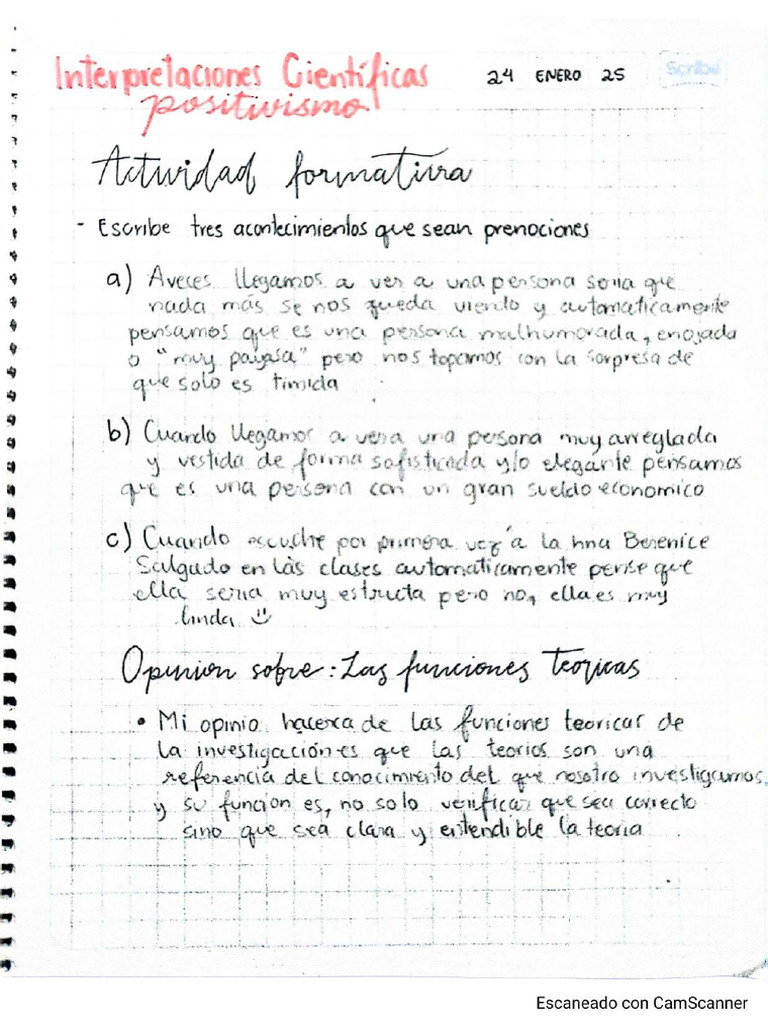 Interpretaciones Científicas
24 ENERO 25
Scribe
positivismo
Actividad formativa
- Escribe tres acontecimientos que sean prenociones
a) Aveces llegamos a ver a una persona seria que
nada más se nos queda viendo y automaticamente
pensamos que es una persona malhumorada, enojada
o "muy payasa" pero nos topamos con la sorpresa de
que solo es timida
b) Cuando llegamos a vera una persona muy arreglada
y vestida de forma sofisticada y/o elegante pensamos
que es una persona con un gran sueldo economico
c) Cuando escuche por primera vez a la hna Berenice
Salgado en las clases automaticamente pense que
ella seria muy estricta pero no, ella es muy
linda
Opinion sobre: Las funciones Teoricas
• Mi opinio hacerca de las funciones teoricas de
la investigación es que las teorias son una
referencia del conocimiento del que nosotro investigamos
y su funcion es, no solo verificar que sea correcto
sino que sea clara y entendible la teoria
Escaneado con CamScanner